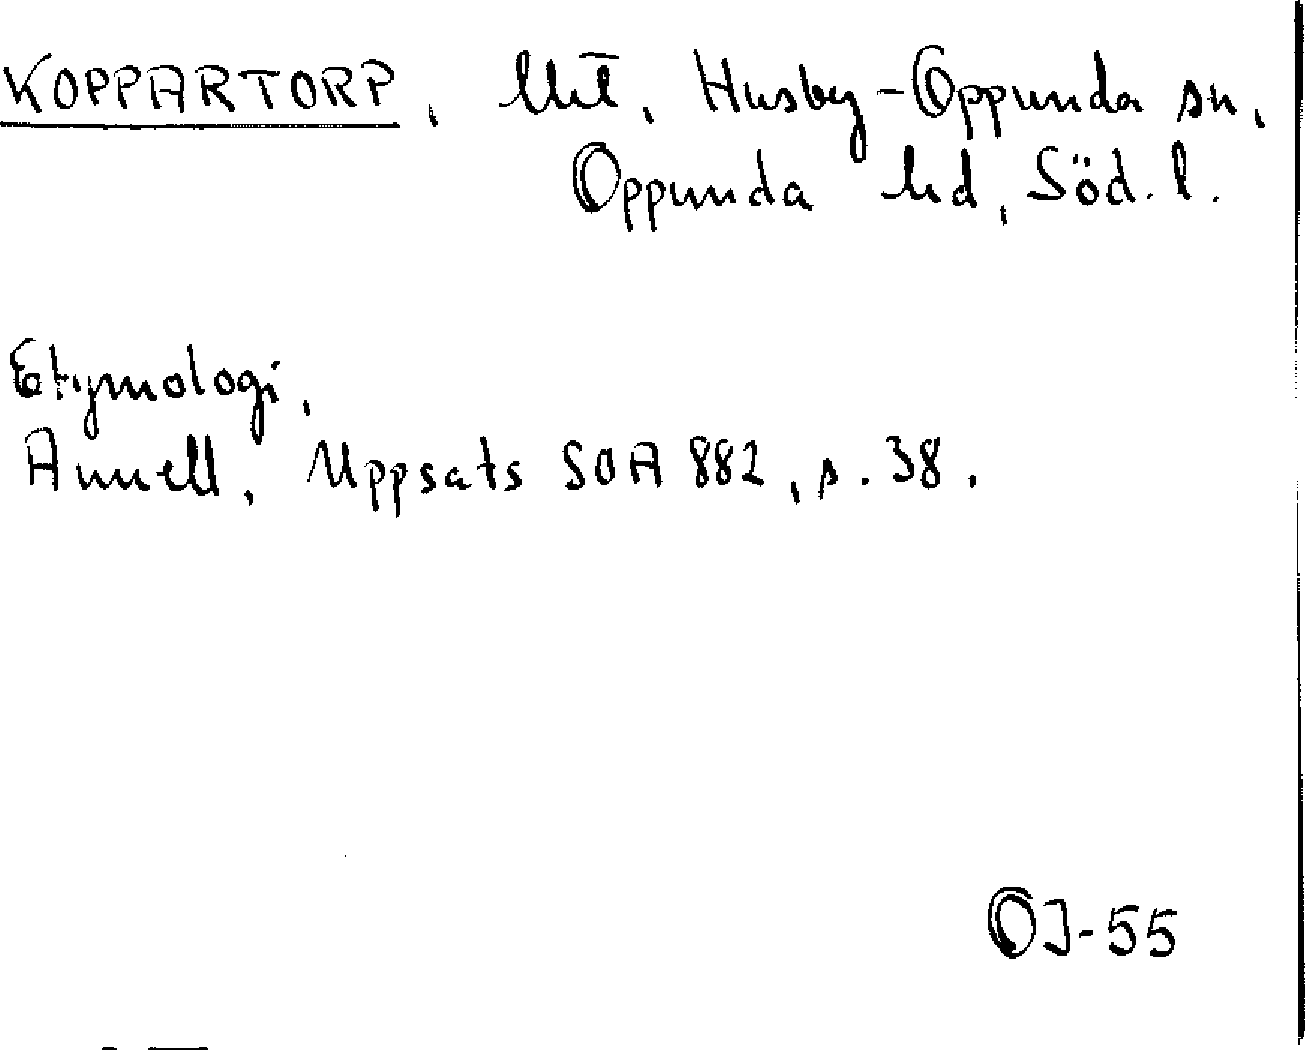 KOPPARTORP, lht, Husby-Oppunda sn,
Oppunda hd, Söd. l.
Etymologi,
Annell, Uppsats SOA 882, s. 38.
OJ-55